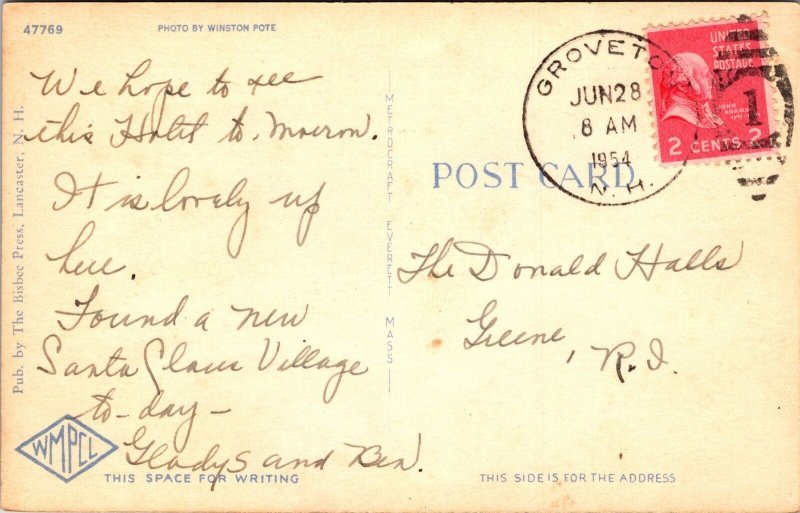 47769
PHOTO BY WINSTON POTE
We hope to see
this Hotel to-morrow.
It is lovely up
here.
Found a new
Santa Claus Village
to-day-
Gladys and Ben.
WMPCL
THIS SPACE FOR WRITING
Pub. by The Bisbee Press, Lancaster, N. H.
METROCRAFT EVERETT MASS
GROVETO
JUN 28
8 AM
1954
N. H.
1
UNITED
STATES
POSTAGE
JOHN
ADAMS
2 CENTS 2
POST CARD
The Donald Halls
Greene, R.I.
THIS SIDE IS FOR THE ADDRESS